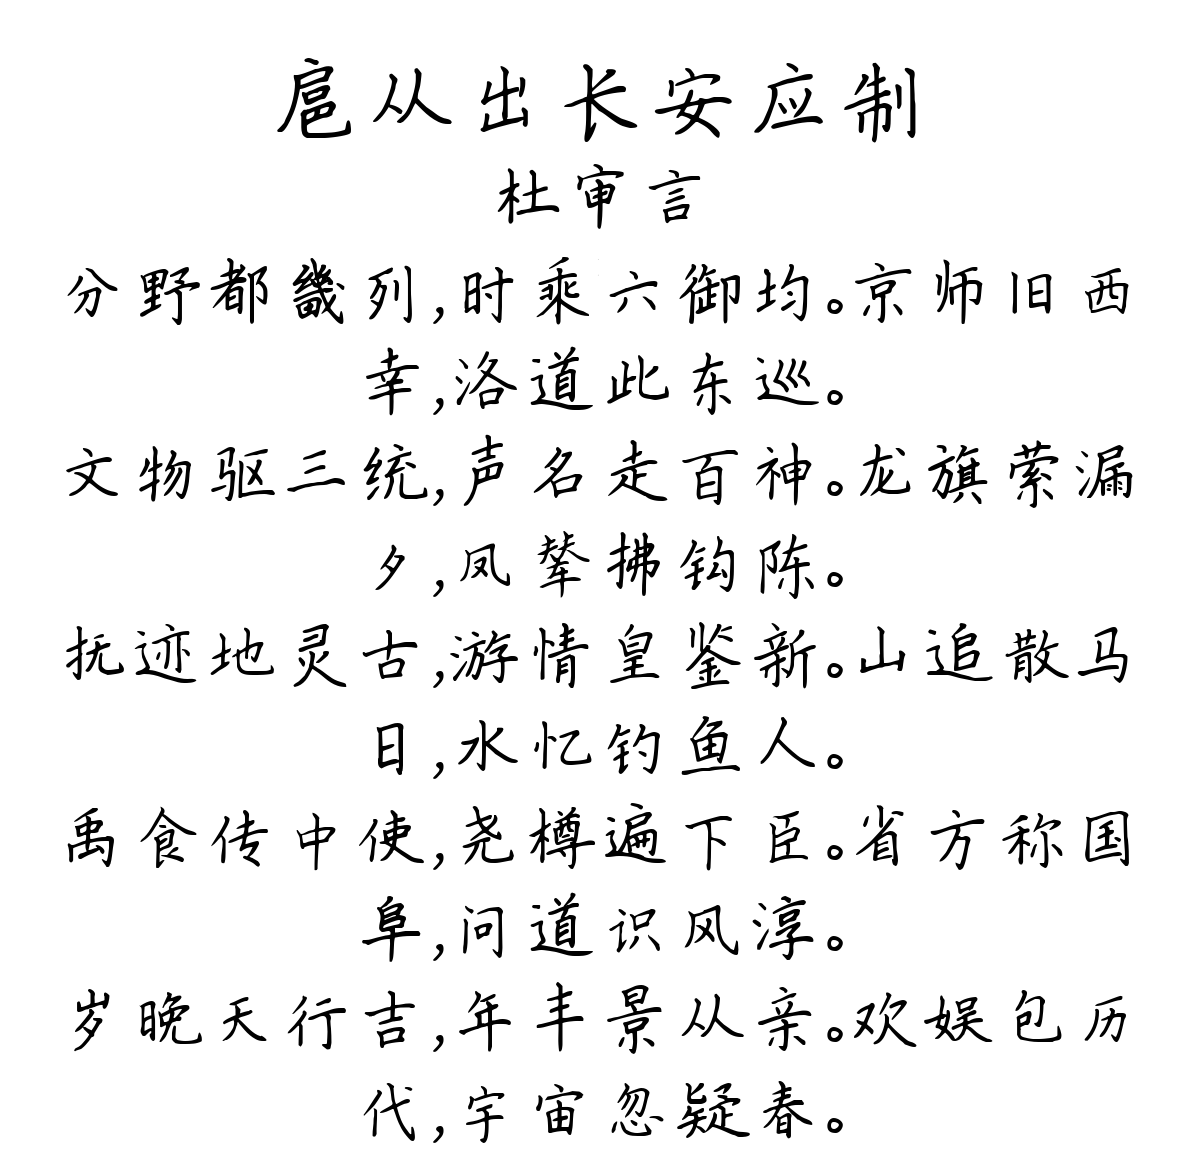 扈从出长安应制
杜审言
分野都畿列,时乘六御均。京师旧西
幸,洛道此东巡。
文物驱三统,声名走百神。龙旗萦漏
夕,凤辇拂钩陈。
抚迹地灵古,游情皇鉴新。山追散马
日,水忆钓鱼人。
禹食传中使,尧樽遍下臣。省方称国
阜,问道识风淳。
岁晚天行吉,年丰景从亲。欢娱包历
代,宇宙忽疑春。